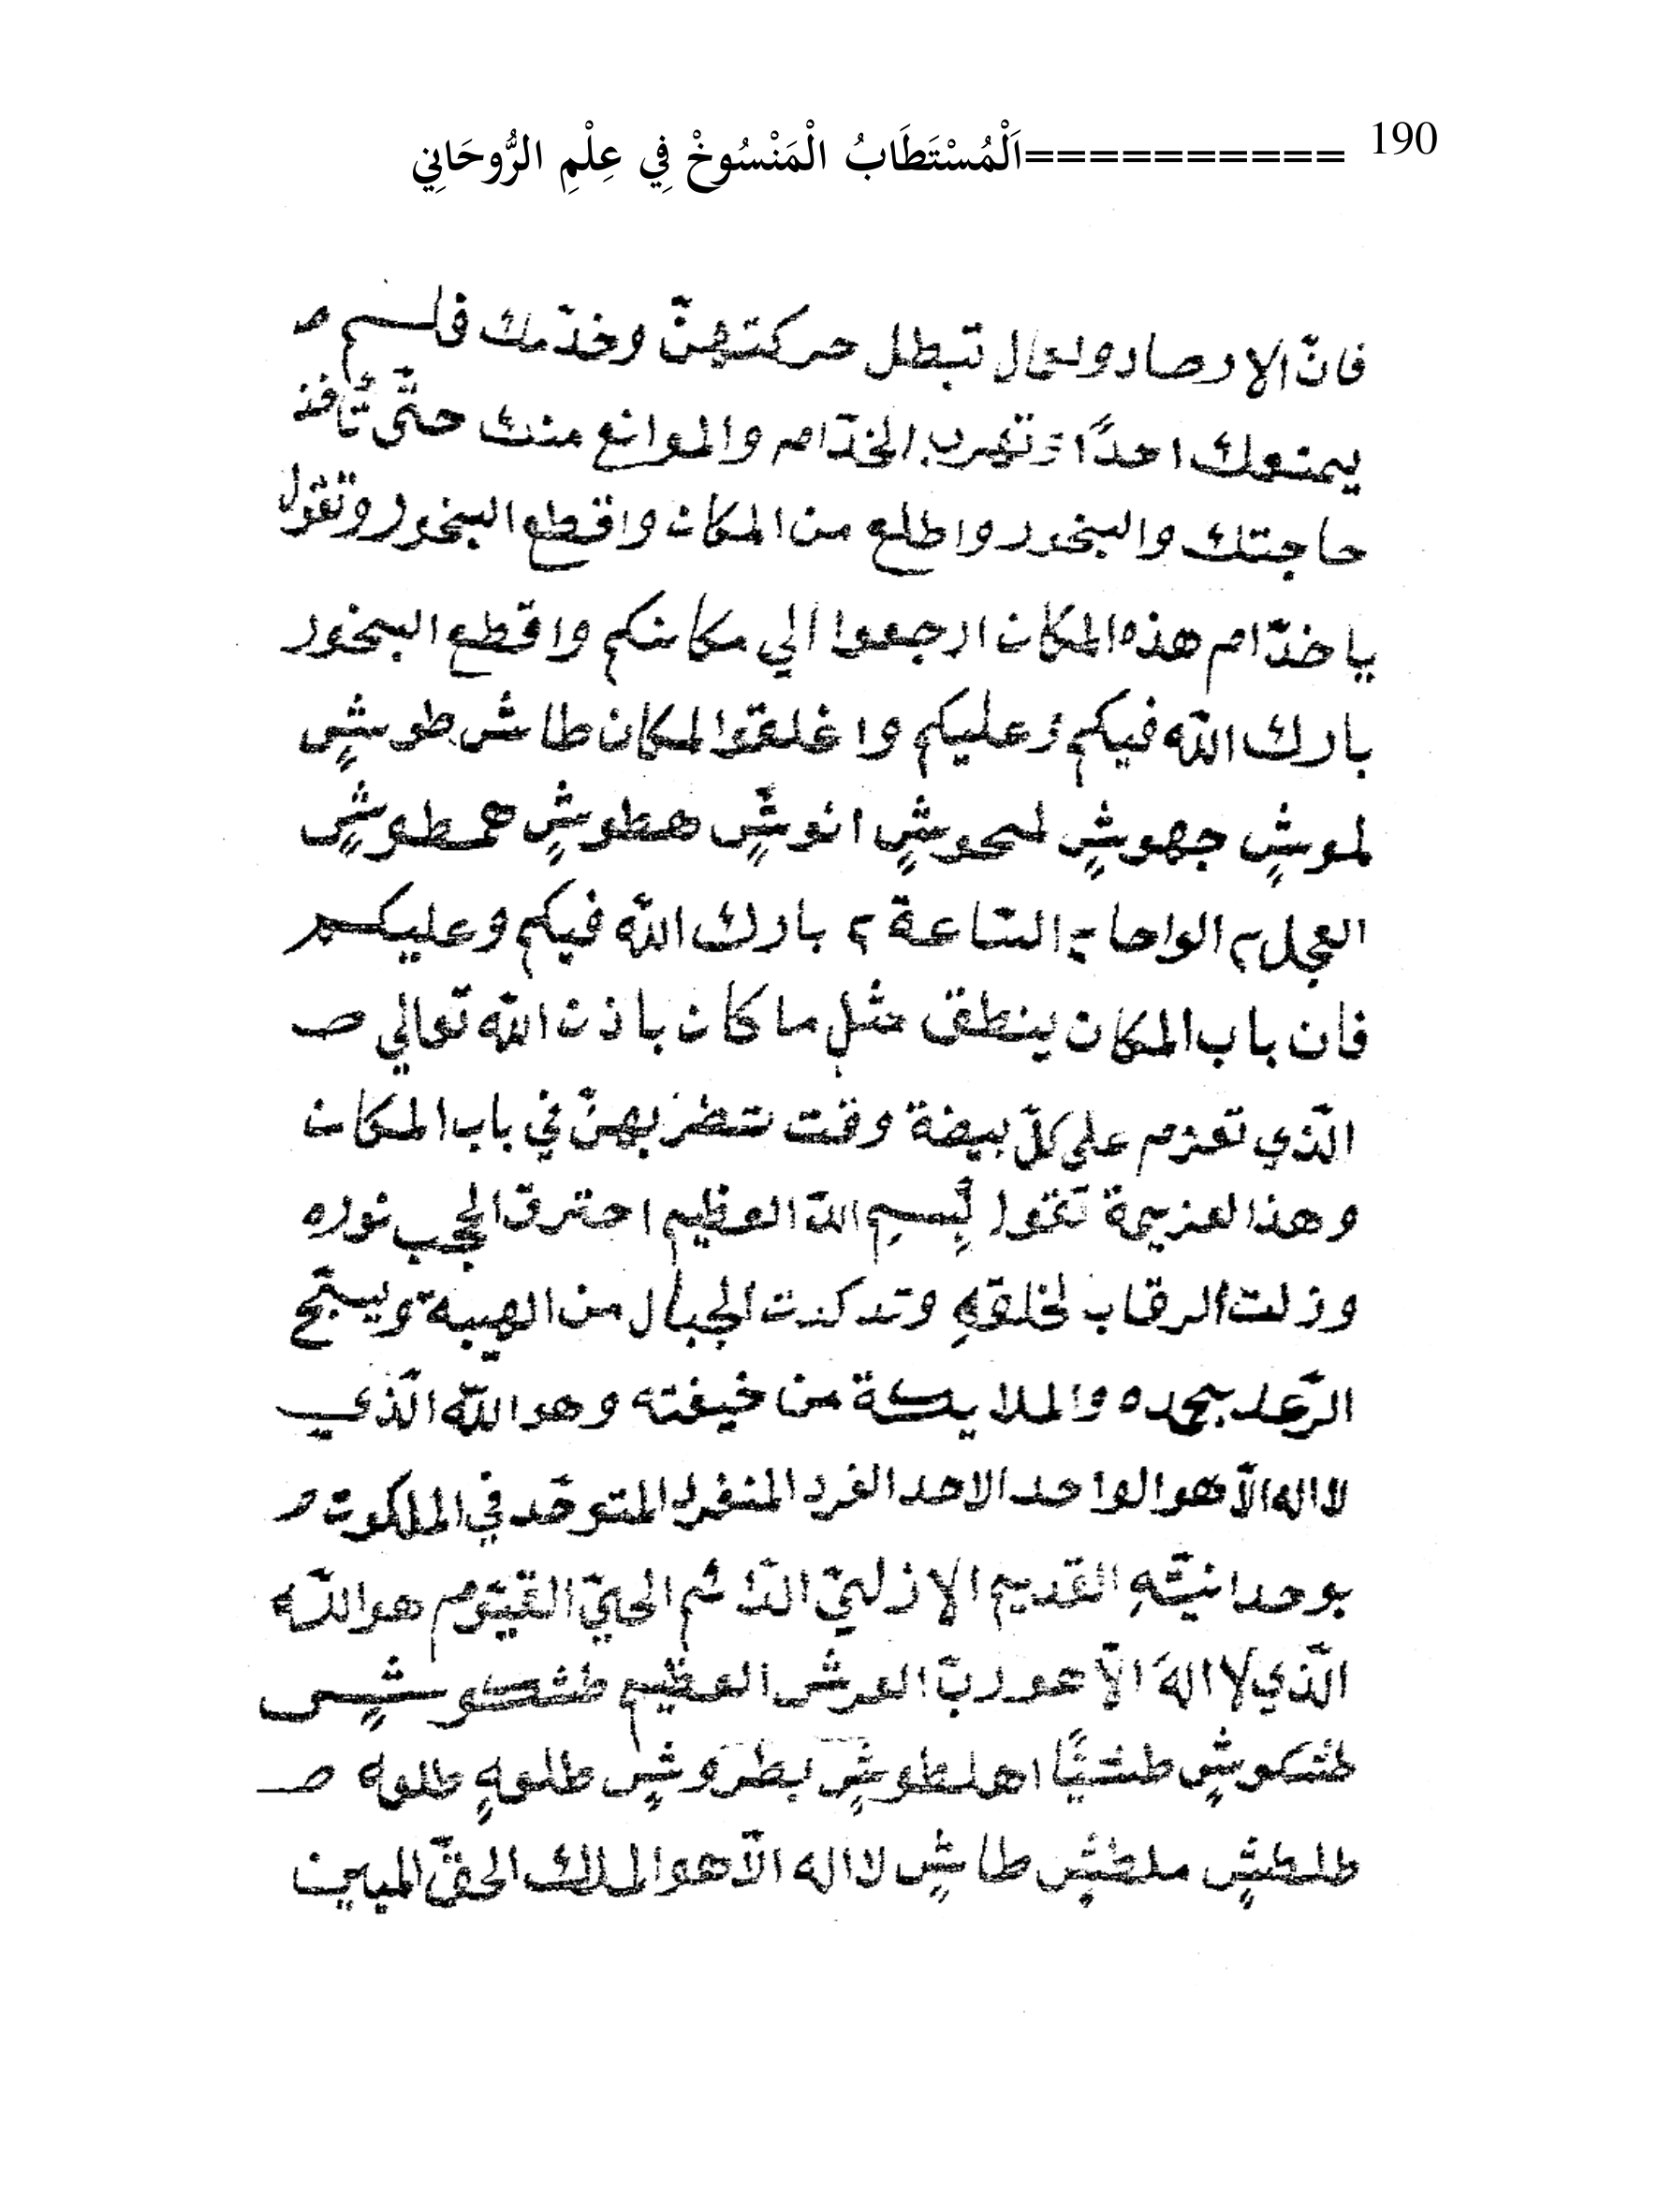 190 ==========اَلْمُسْتَطَابُ الْمَنْسُوخْ فِي عِلْمِ الرُّوحَانِي
فانّ الارصاد ولعمال تبطل حركتهنّ وخدّمك فلسم
يمنعوك احدًا وتهرب الخدّام والموانع منك حتّى تأخذ
حاجتك والبخور واطلع من المكان واقطع البخور وتقول
يا خدّام هذه المكان ارجعوا الي مكانكم واقطع البخور
بارك اللّه فيكم وعليكم واغلقوا المكان طاش طوشٍ
لموشٍ جهوشٍ لمحوشٍ انوشٍّ هطوشٍ همطوشٍ
العجل ٢ الواحا ٢ السّاعة ٢ بارك اللّه فيكم وعليكم
فان باب المكان ينطق مثل ما كان باذن اللّه تعالي ص
الّذي تعزم على كلّ بيضة وقت تتضربهنّ في باب المكان
وهذا لعزيمة تقوا بِسمِ اللّه العظيم احترق الحجب نوره
وزلت الرقاب لخلقهِ وتدكدت الجبال من الهيبة ويسبّح
الرّعد بحمده والملايكة من خيفته وهو اللّه الّذي
لا اله الاّ هو الواحد الاحد الفرد المنفرد المتوحّد في الملكوت
بوحدانيّتهِ القديم الازليّ الدّائم الحيّ القيّوم هو اللّه
الّذي لا الهَ الاّ هو ربّ العرش العظيم طشكوشٍ
طشكوشٍ طشيًّا اهلطوشٍ بطروشٍ طلوهٍ طلوه ص
طلطشٍ ملطشٍ طاشٍ لا اله الاّ هو الملك الحقّ المبين